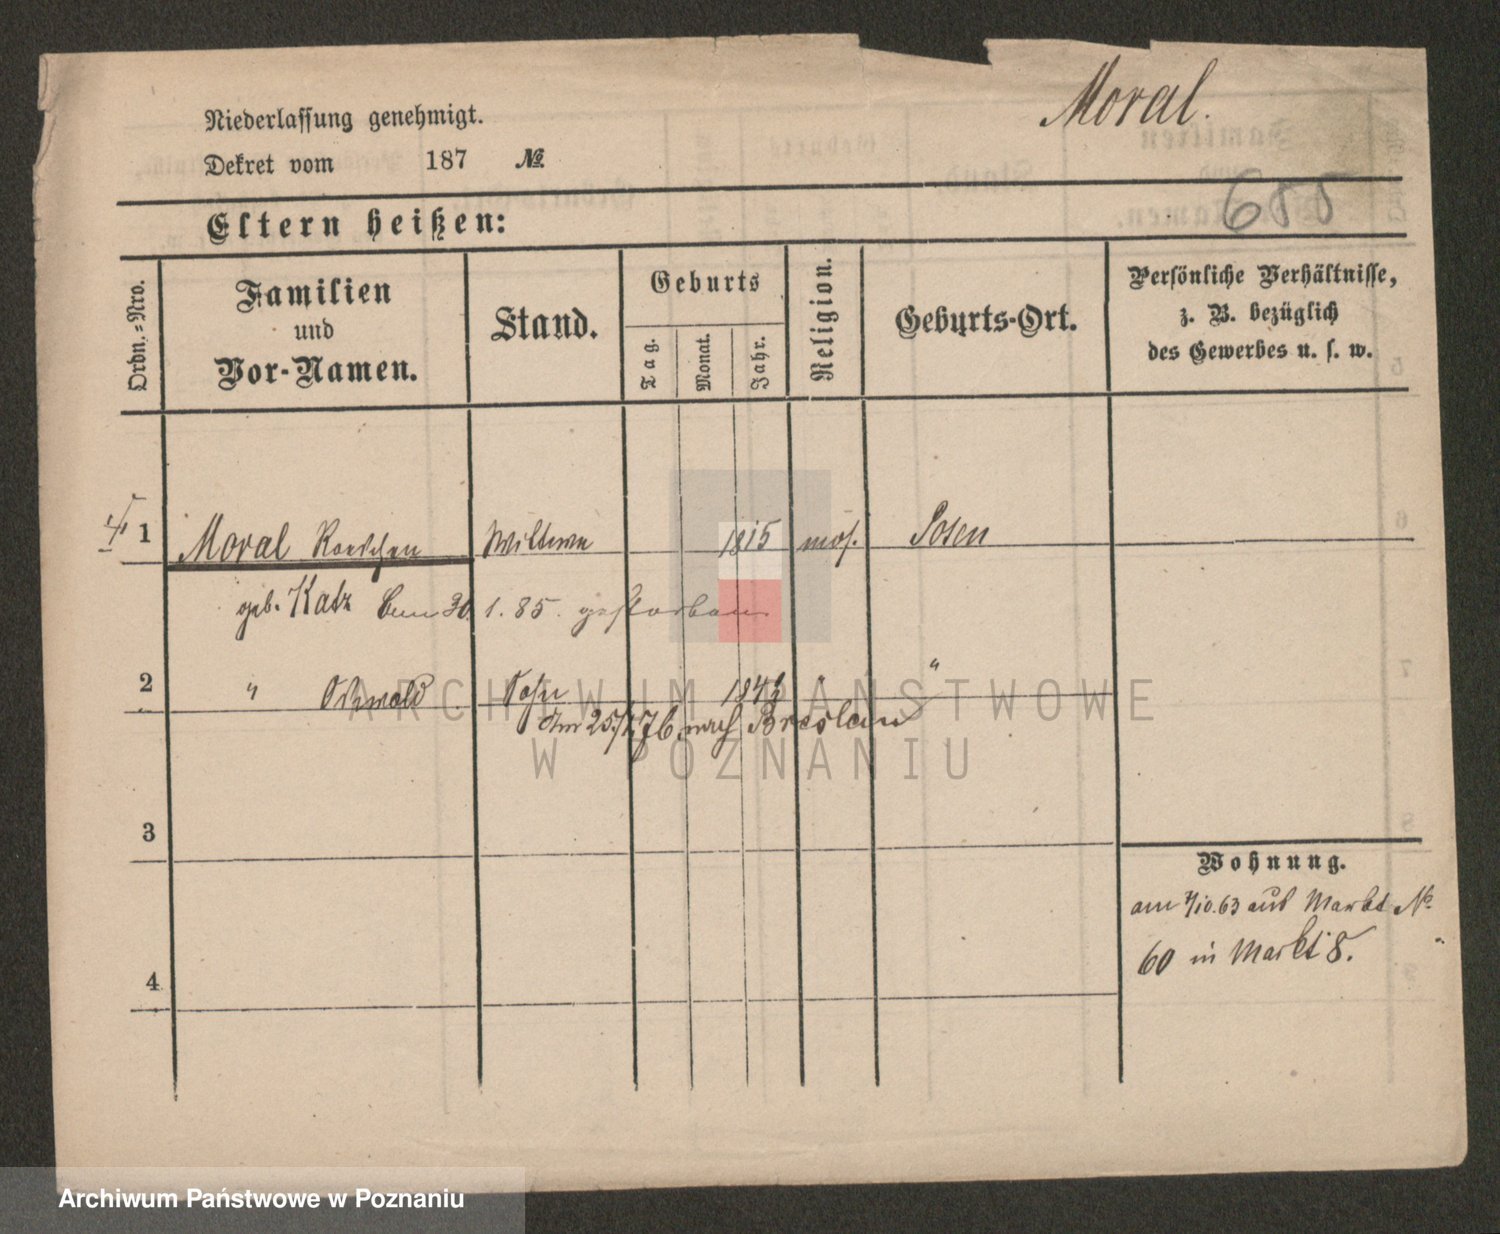 Moral.
Niederlassung genehmigt.
Dekret vom 187 №
655
Eltern heißen:
Ordn.-Nro.
Familien und Vor-Namen.
Stand.
Geburts
Tag.
Monat.
Jahr.
Religion.
Geburts-Ort.
Persönliche Verhältnisse,
z. B. bezüglich
des Gewerbes u. s. w.
1 Moral Roeschen Wittwe 1815 mos. Posen
geb. Katz 30. 1. 85. gestorben
2 " Oswald Sohn 184 " "
Am 25. 76 nach Breslau
3
4
Wohnung.
am 7/10.63 aus Markt №
60 in Markt 8.
ARCHIWUM PAŃSTWOWE
W POZNANIU
Archiwum Państwowe w Poznaniu